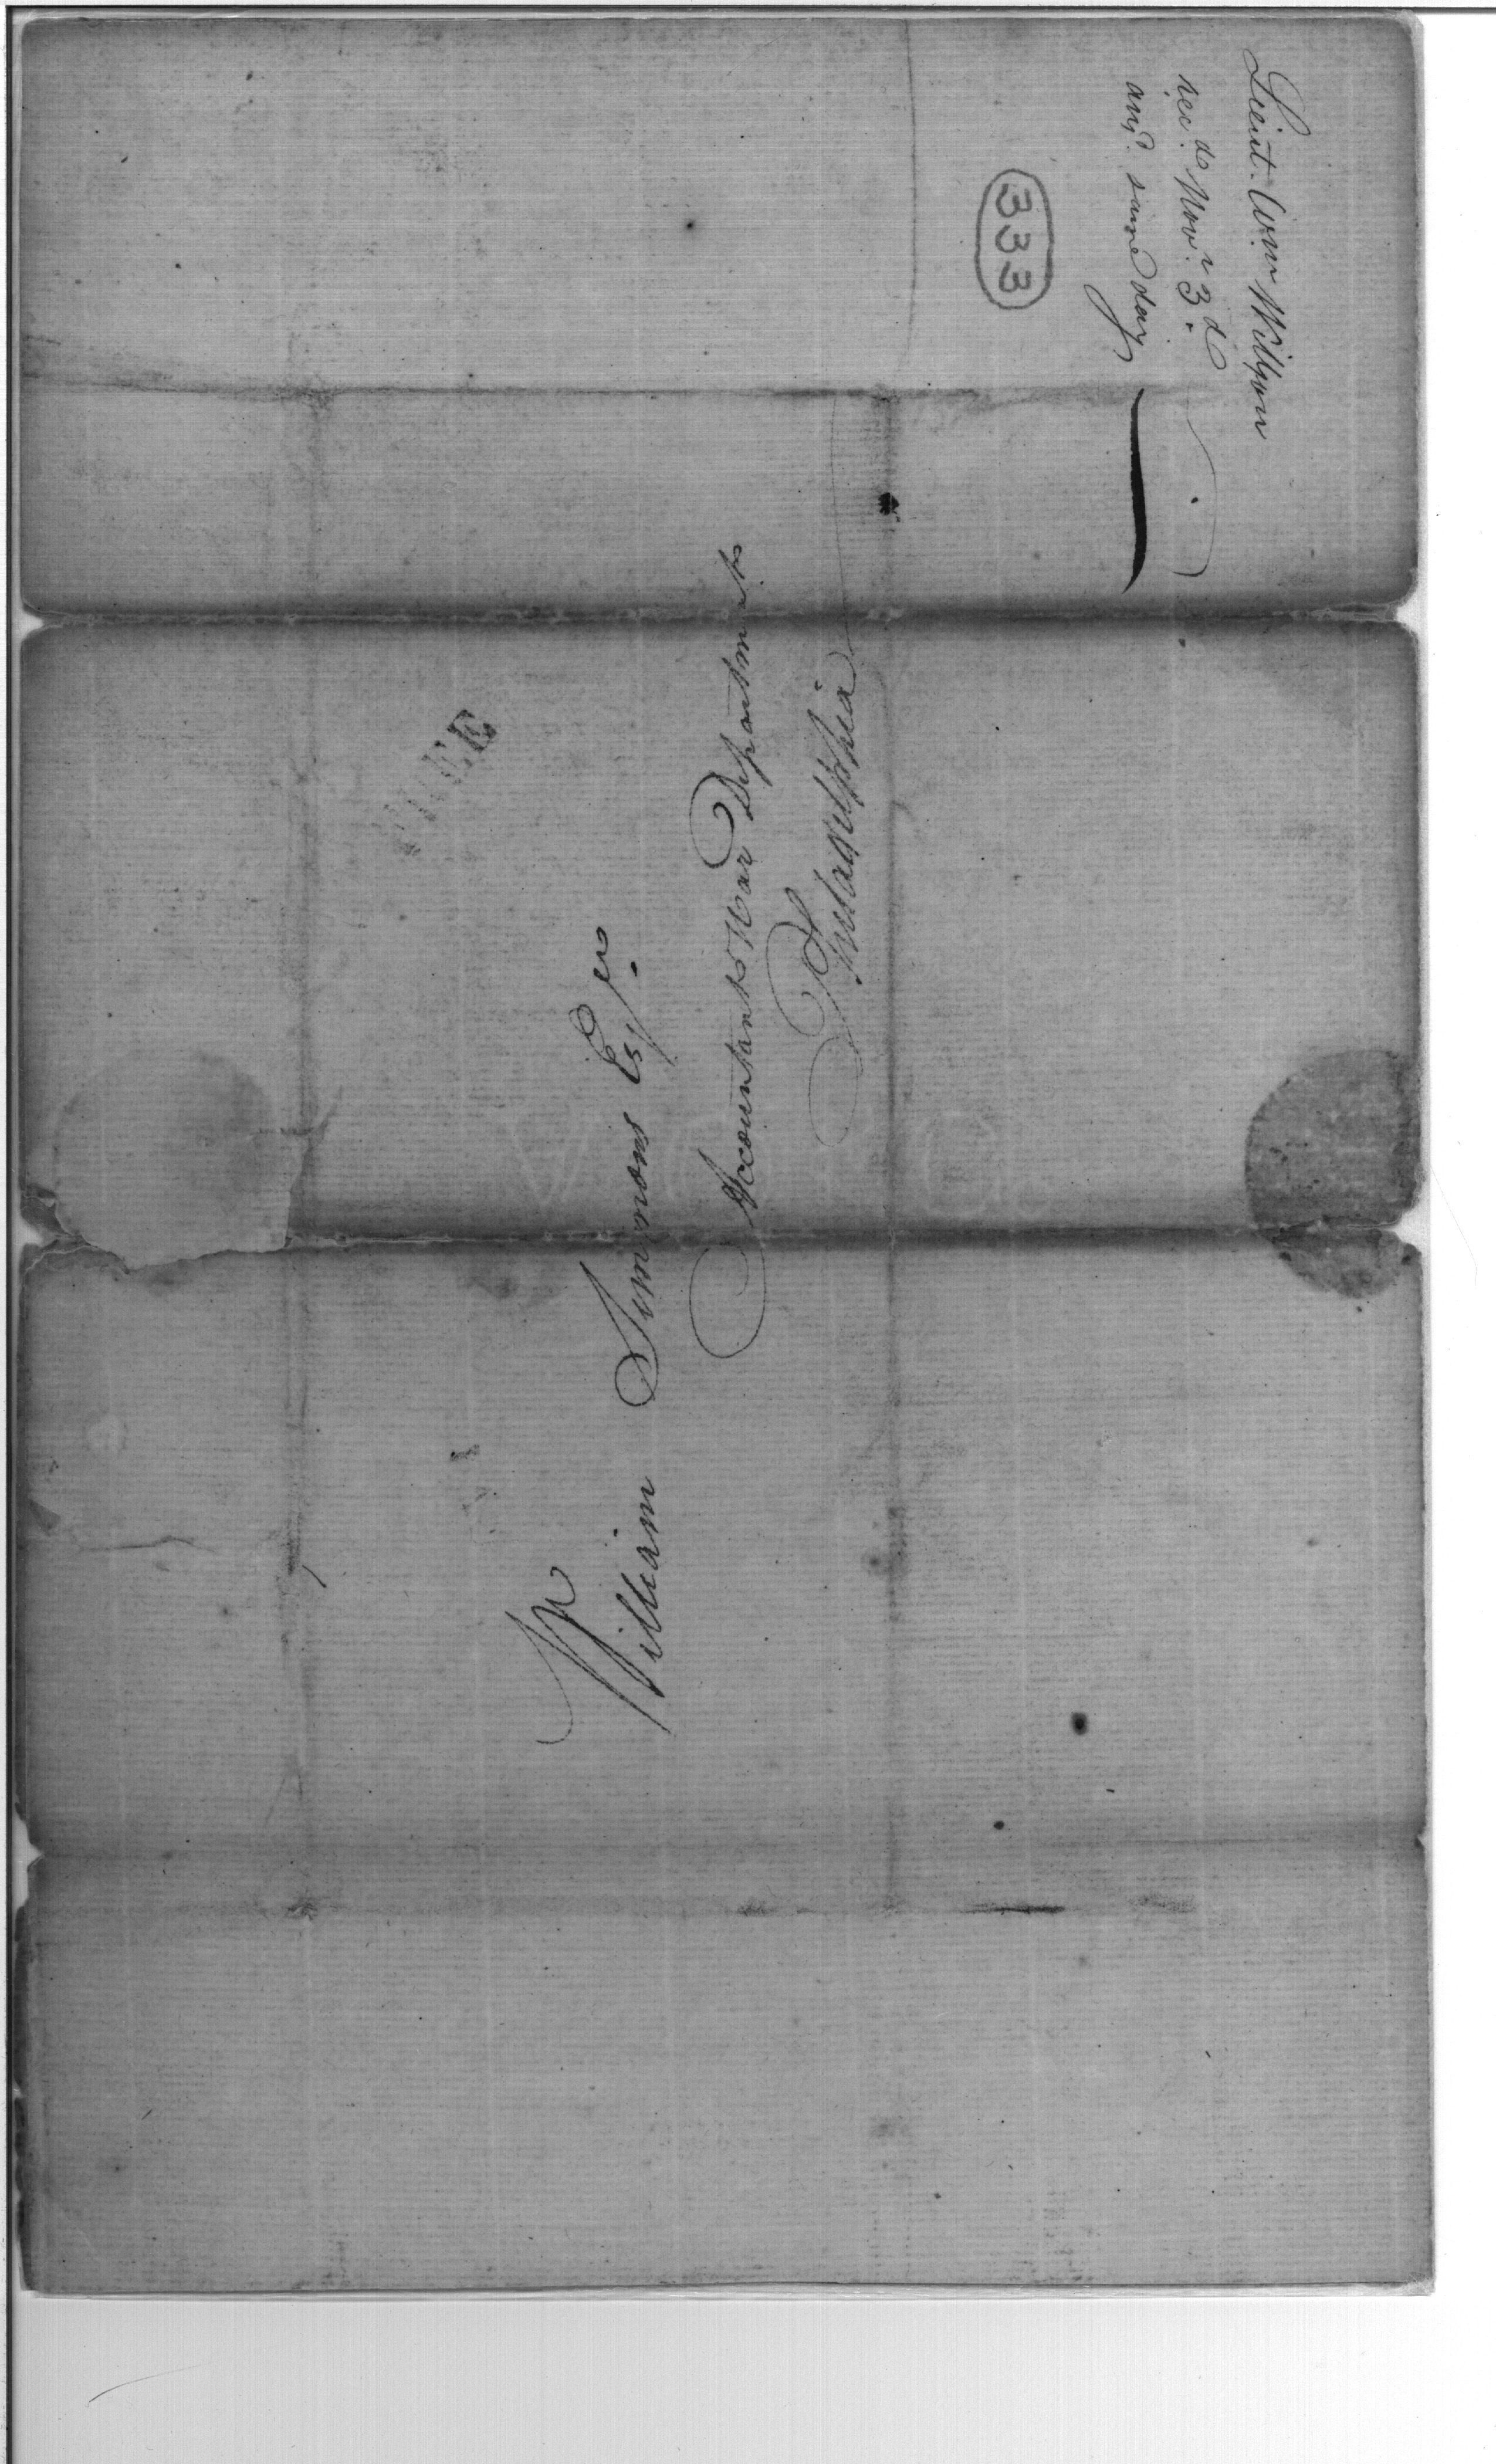 Lieut. Wm Wilson
rec.d Novr. 3.d
ansd. same day
333
FREE
William Simmons Esqr.
Accountant War Department
Philadelphia